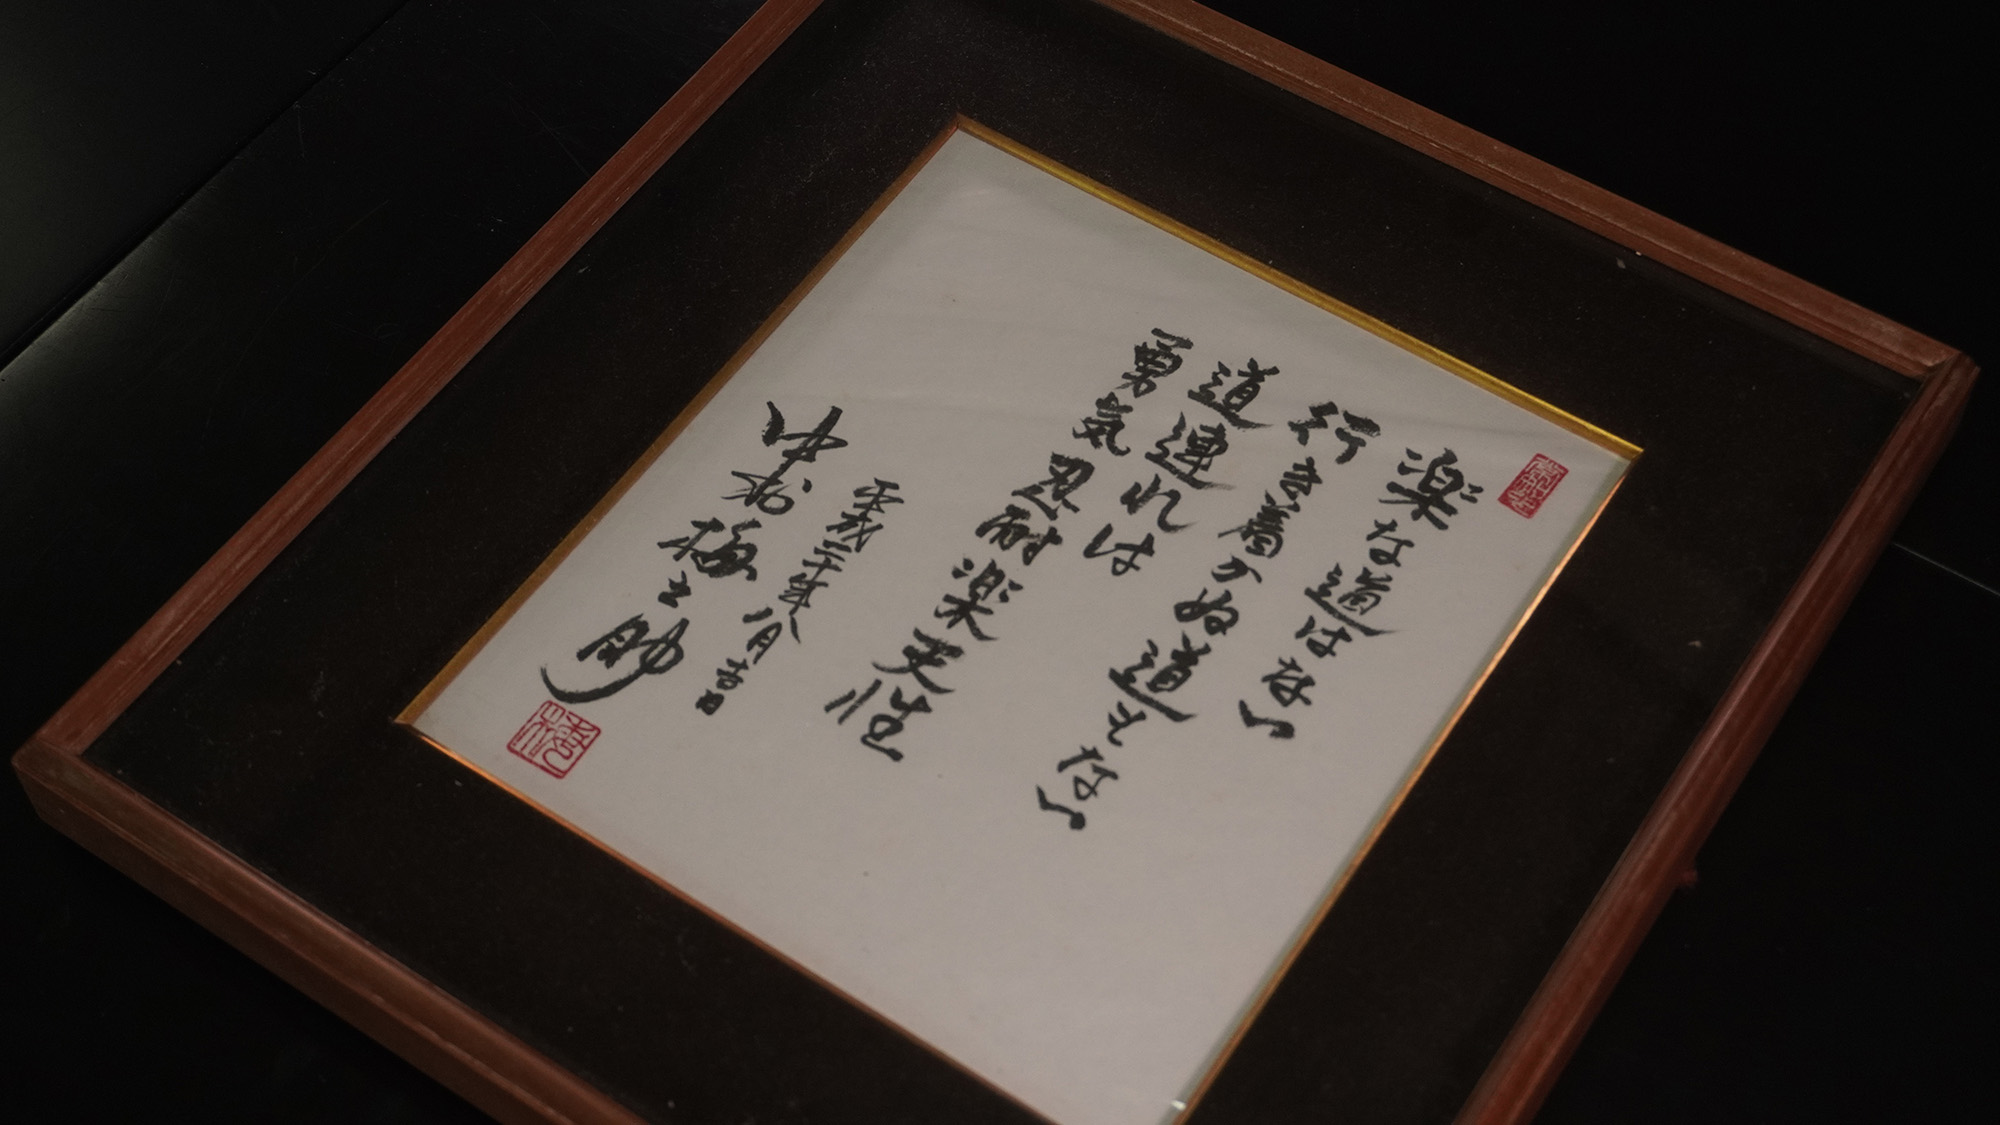 楽な道はない
行き着かぬ道もない
道連れは
勇気忍耐楽天性
平成二十年八月吉日
中村梅之助
梅